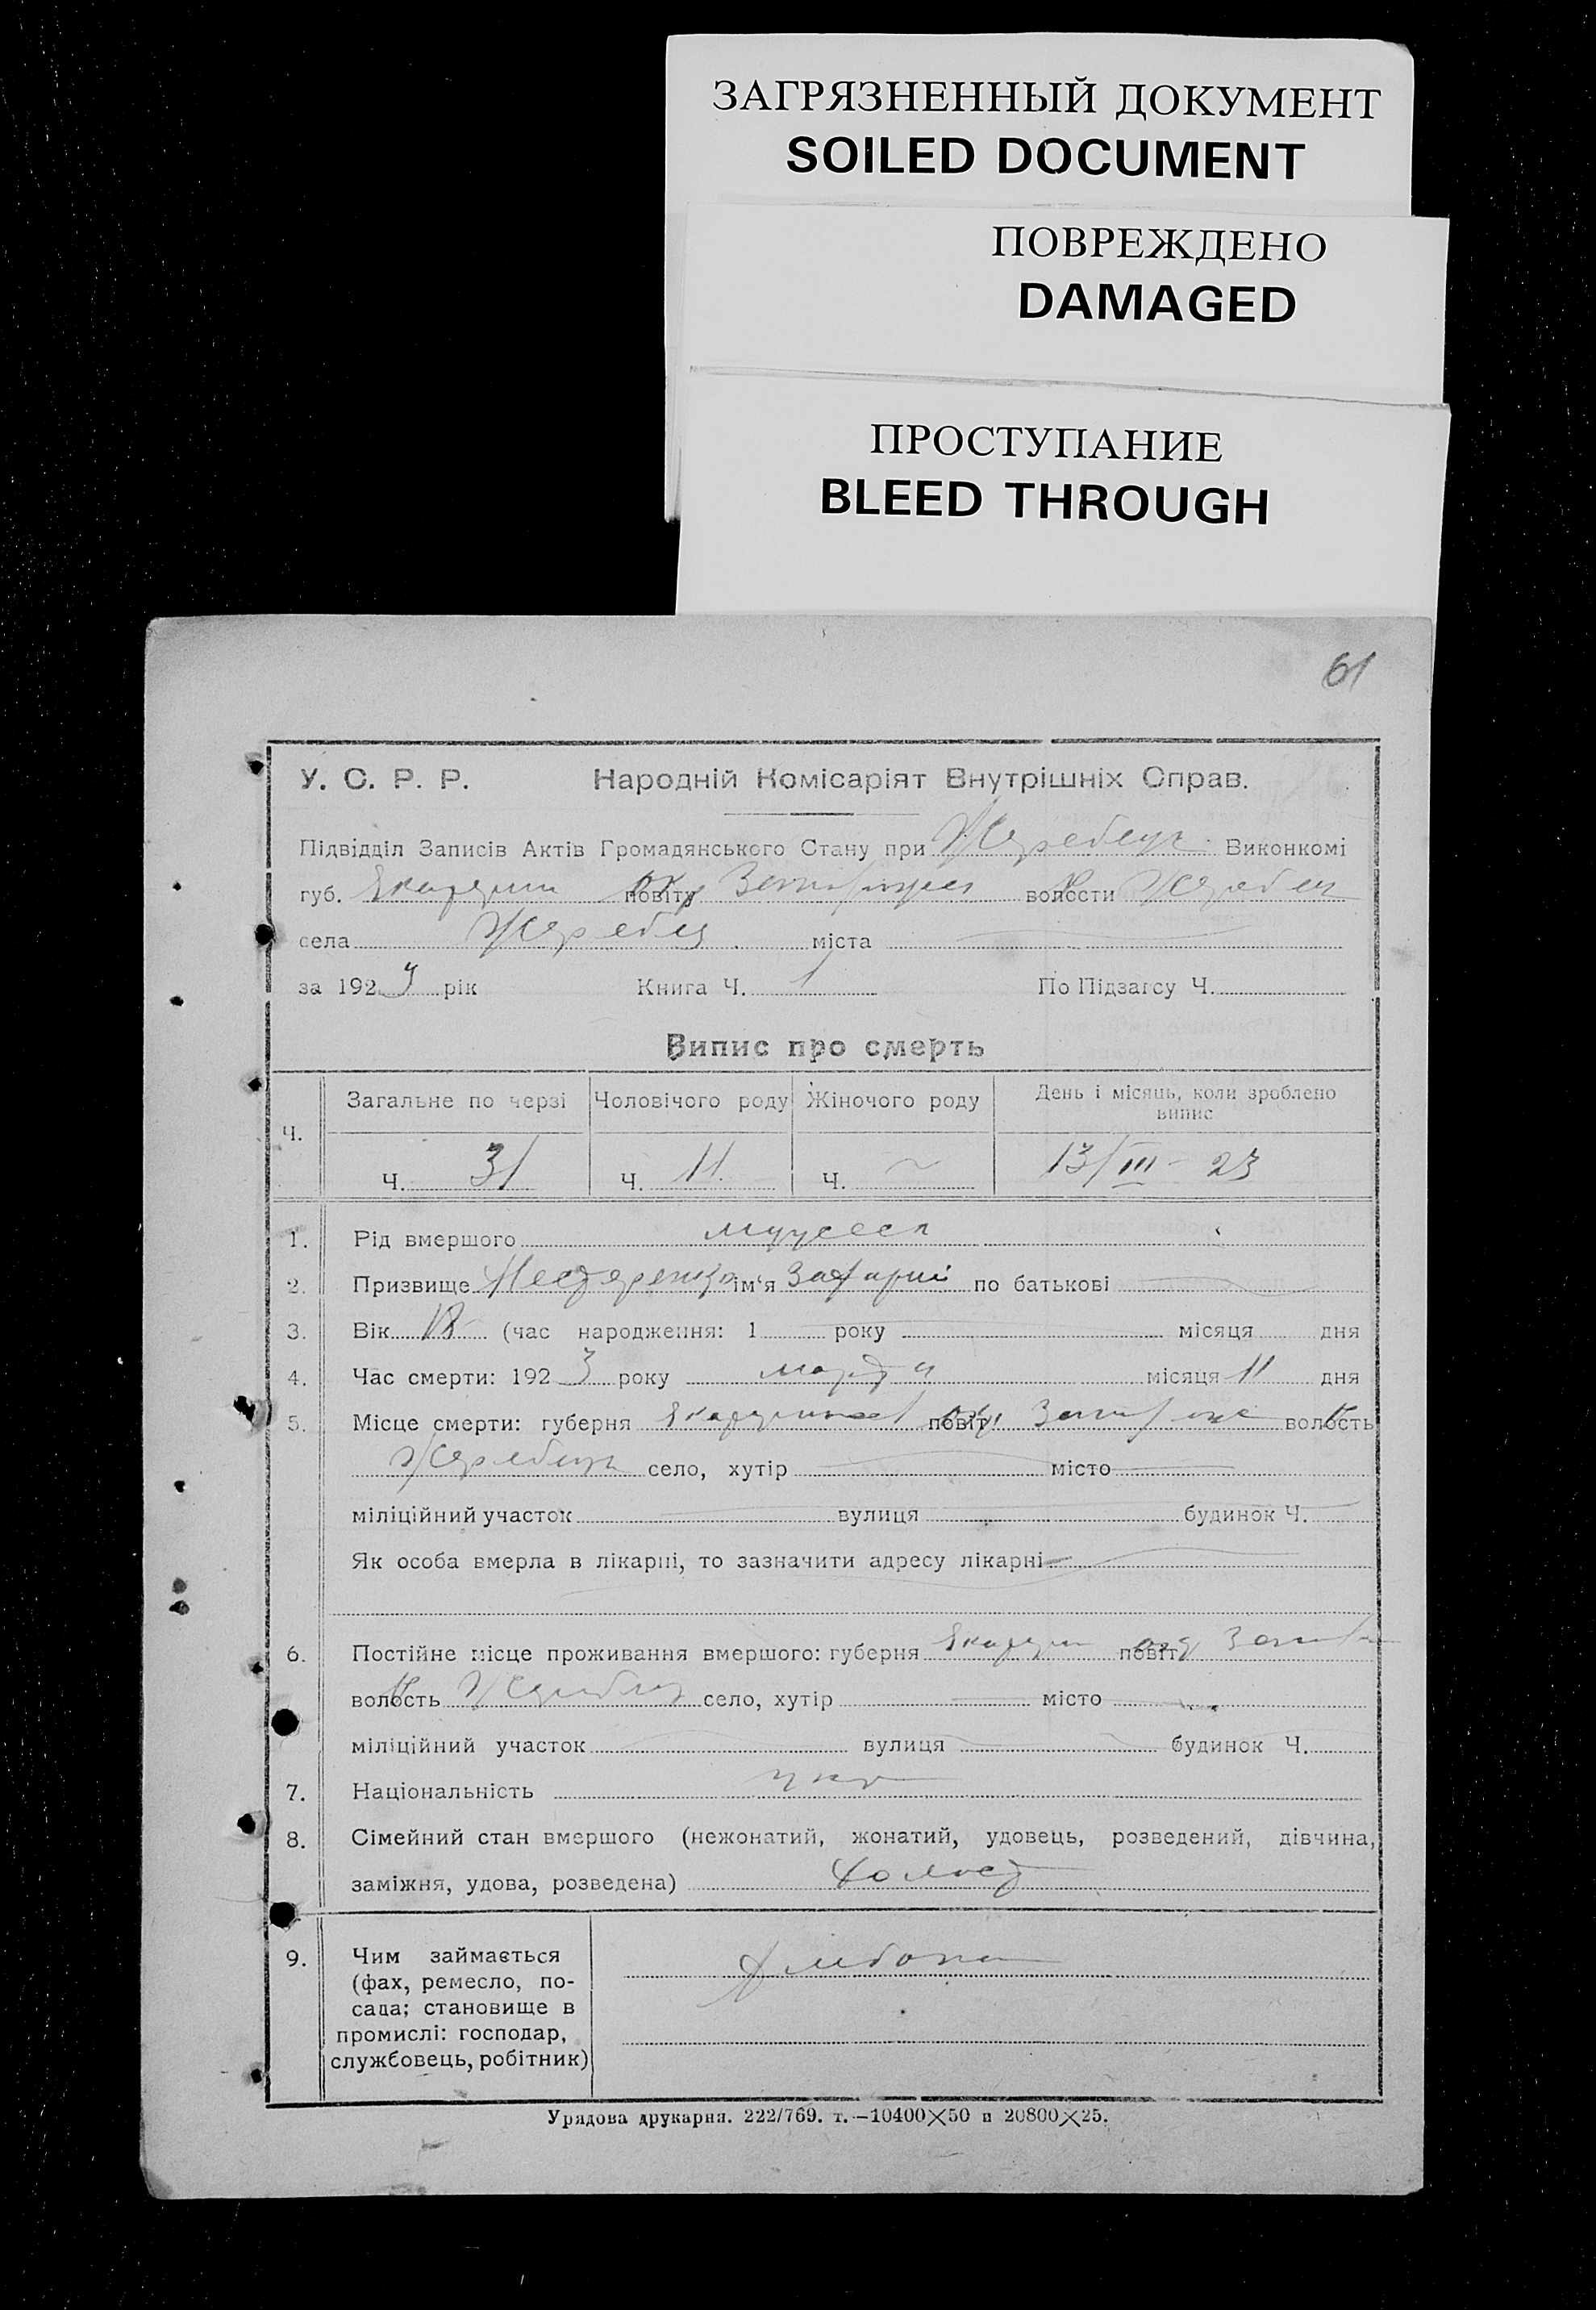 ЗАГРЯЗНЕННЫЙ ДОКУМЕНТ
SOILED DOCUMENT
ПОВРЕЖДЕНО
DAMAGED
ПРОСТУПАНИЕ
BLEED THROUGH
61
У. С. Р. Р. Народній Комісаріят Внутрішніх Справ.
Підвідділ Записів Актів Громадянського Стану при Жеребецк Виконкомі
губ. повіту волости
села міста
за 1923 рік Книга Ч. 1 По Підзагсу Ч.
Випис про смерть
Ч. Загальне по черзі Чоловічого роду Жіночого роду День і місяць, коли зроблено випис
Ч. 31 Ч. 11 Ч. ~ 13/III - 23
1. Рід вмершого
2. Призвище ім'я Захарий по батькові
3. Вік 18 (час народження: 1 року місяця дня
4. Час смерти: 1923 року марта місяця 11 дня
5. Місце смерти: губерня повіт волость
село, хутір місто
міліційний участок вулиця будинок Ч.
Як особа вмерла в лікарні, то зазначити адресу лікарні
6. Постійне місце проживання вмершого: губерня повіт
волость село, хутір місто
міліційний участок вулиця будинок Ч.
7. Національність укр
8. Сімейний стан вмершого (нежонатий, жонатий, удовець, розведений, дівчина,
заміжня, удова, розведена) холост
9. Чим займається
(фах, ремесло, по-
сада; становище в
промислі: господар,
службовець, робітник)
Урядова друкарня. 222/769. т.—10400×50 п 20800×25.